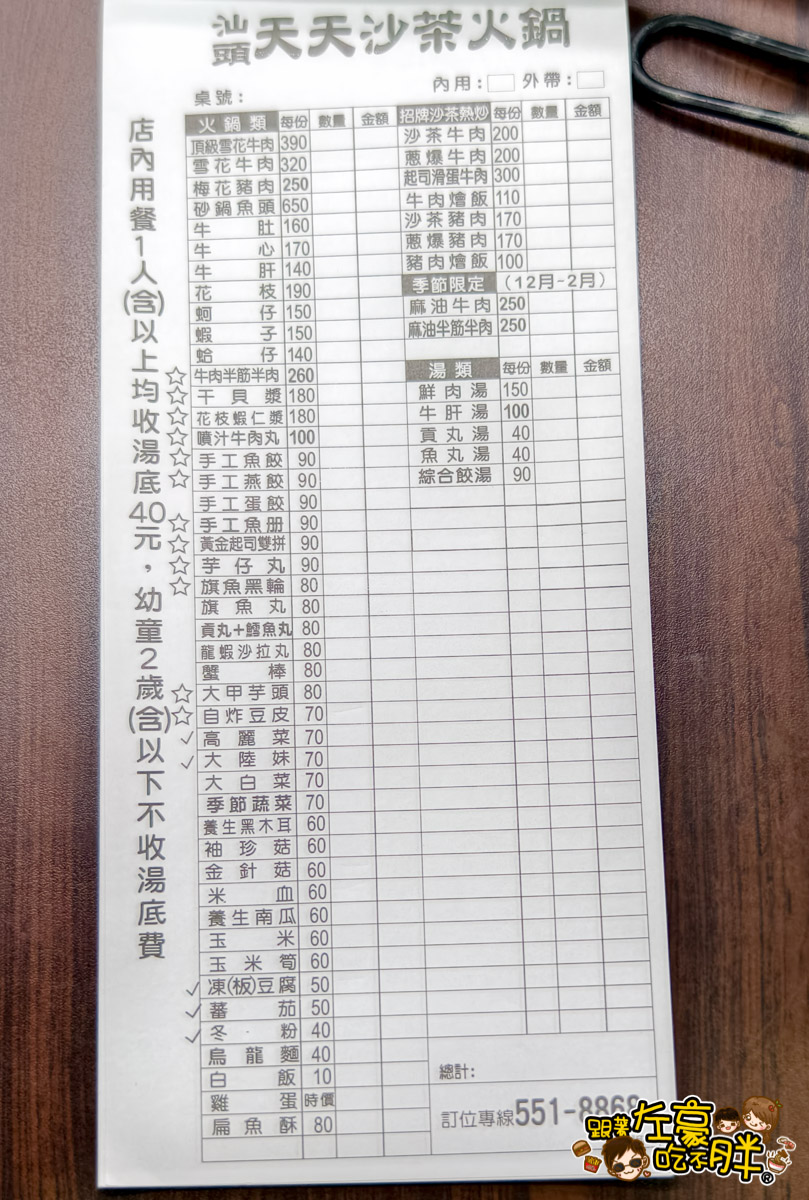 汕頭天天沙茶火鍋
內用：　外帶：
桌號：
店內用餐1人(含)以上均收湯底40元，幼童2歲(含)以下不收湯底費
火鍋類 每份 數量 金額
頂級雪花牛肉 390
雪花牛肉 320
梅花豬肉 250
砂鍋魚頭 650
牛肚 160
牛心 170
牛肝 140
花枝 190
蚵仔 150
蝦子 150
蛤仔 140
☆牛肉半筋半肉 260
☆干貝漿 180
☆花枝蝦仁漿 180
☆噴汁牛肉丸 100
☆手工魚餃 90
☆手工燕餃 90
手工蛋餃 90
☆手工魚册 90
☆黃金起司雙拼 90
☆芋仔丸 90
☆旗魚黑輪 80
旗魚丸 80
貢丸+鱈魚丸 80
龍蝦沙拉丸 80
蟹棒 80
☆大甲芋頭 80
☆自炸豆皮 70
✓高麗菜 70
✓大陸妹 70
大白菜 70
季節蔬菜 70
養生黑木耳 60
袖珍菇 60
金針菇 60
米血 60
養生南瓜 60
玉米 60
玉米筍 60
✓凍(板)豆腐 50
✓蕃茄 50
✓冬粉 40
烏龍麵 40
白飯 10
雞蛋 時價
扁魚酥 80
招牌沙茶熱炒 每份 數量 金額
沙茶牛肉 200
蔥爆牛肉 200
起司滑蛋牛肉 300
牛肉燴飯 110
沙茶豬肉 170
蔥爆豬肉 170
豬肉燴飯 100
季節限定（12月-2月）
麻油牛肉 250
麻油半筋半肉 250
湯類 每份 數量 金額
鮮肉湯 150
牛肝湯 100
貢丸湯 40
魚丸湯 40
綜合餃湯 90
總計：
訂位專線551-8868
跟著左豪吃不胖®